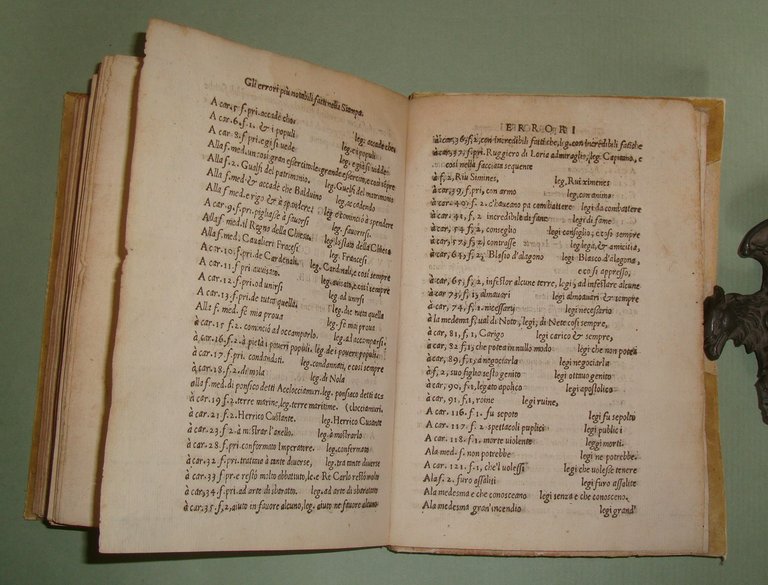 Gli errori più notabili fatti nella Stampa.
A car. 5 f. pri. accadè che leg. accade che
A car. 6. f. 1. & i populi leg. e i populi
A car. 8. f. pri. egi si vede leg. e già si vede
Alla f. med. un così gran esercito leg. grande esercito, e così sẽpre
Alla f. 2. Guelfi del patrimonio, leg. Guelfi del matrimonio
Alla f med. & accadè che Balduino leg. accadendo
Alla f med. e rigo & à spandere leg. e cominciò a spendere
A car. 9. f. pri. pigliasse à favorsi leg. favorirsi.
Alla f med. il Regno della Chiesa, leg. lo stato della Chiesa
Alla f. med. Cavalieri Fracesi leg. Francesi
A car. 10; f. pri. de Cardenali, leg. Cardinali, e così sempre
A car. 11 f. pri avisato, leg. avisato, e così sempre
A car. 12. f. pri. ad unirsi leg. ad unirsi
A car. 13. f. pri. de tutta quella, leg. che nella quella
Alla f. med. se mia proua leg. fè mia proua
à car. 15 f. 2. cominciò ad accamparlo. leg. al accamparsi;
à car. 16. f. 2. à pietà i poveri populi. leg. de i poveri populi.
à car. 17. f. pri. condandati. leg. condannati, e così sempre
à car. 18. f. 2. de mola leg. di Nola
alla f. med. di ponsaco detti
à car. 19 f. 2. terre marine, leg. terre maritime.
à car. 21. f. 2. Herrico Custante. leg. Herrico Cusante
à car. 23. f. 2. à mi strar l'anello. leg. à mostrarlo
à car. 28. f. pri. conformato Imperatore. leg. confermato
à car. 32 f. pri. trattato à tante diuerse, leg. trà tante diuerse
à car. 33 f. pr. e restò molto ebbattuto, le. e Re Carlo restò molto
à car. 34. f. pri. ad arte di sbarato. leg. ad arte di sbaratato
à car. 35. f. 2, aiuto in fauore alcuno, leg. aiuto ne fauore alcuno
ERRORI
à car, 36, f, 2, con incredibili fattiche, leg. con incredibili fatiche
à car. 37; f. pri. Ruggiero di Loria admiraglio, leg. Capitano, e
così nella facciata sequente
à f, 2, Riu Simines, leg, Rui ximenes
à car, 39, f. pri, con armo leg, con animo
à car, 40 f. 2. c'haueano pa combattere legi da combattere
à car, 41, f. 2 incredibile di fane legi di fame
à car, 54, f, 2, conseglio legi consiglio; e così sempre
à car, 57, f, 2, contrasse leg lega, & amicitia,
à car, 63, f, 2, Blasio d'alagono legi Blasco d'alagona,
e così appresso;
à car, 65, f, 2, infestar alcune terre, legi, ad infestare alcune
à car 73, f, 1, almauari legi almouauri & sempre
à car, 74, f, 1. necissarij legi necessario
à la medema f, ual di Noto, legi, di Neto così sempre,
à car, 81, f, 1, Carigo legi carico & sempre,
à car, 82 f, 1, che potea in nullo modo legi che non potea
à car, 89, f, 1 a negociarla legi negociarla
à f, 2, suo figlio sesto genito legi ottauo genito
à car, 90, f, 1, legato apolico legi apostolico
à car, 91, f, 1, roine legi ruine,
A car. 116. f. 1. fu sepoto legi fu sepolto
A car. 117. f. 2 spettacoli puplici legi publici
A car. 118. f. 1. morte violente leggi morti.
Ala med. f. non potrebbe legi ne potrebbe.
A car. 121. f. 1, che'l uolessi legi che uolesse tenere
Ala f. 2. furo assaliti legi furo assalite
Ala medesma e che conosceano legi senza e che conosceno.
Ala medesma gran' incendio legi grand'